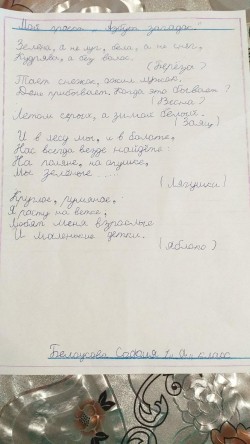 Мой проект „Азбука загадок."
Зелена, а не луг, бела, а не снег,
Кудрява, а без волос.
(Берёза?)
Тает снежок, ожил лужок,
День прибывает. Когда это бывает?
(Весна?)
Летом серый, а зимой белый.
(Заяц)
И в лесу мы, и в болоте,
Нас всегда везде найдёте:
На поляне, на опушке,
Мы зелёные ....
(Лягушки)
Круглое, румяное,
Я расту на ветке,
Любят меня взрослые
И маленькие детки.
(Яблоко)
Белоусова София 1 „А" класс